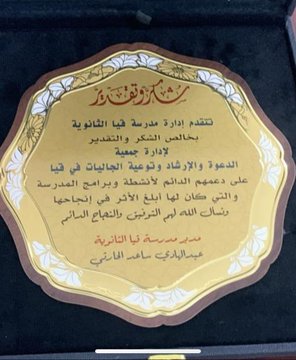 شكر وتقدير
تتقدم إدارة مدرسة قيا الثانوية
بخالص الشكر والتقدير
لإدارة جمعية
الدعوة والإرشاد وتوعية الجاليات في قيا
على دعمهم الدائم لأنشطة وبرامج المدرسة
والتي كان لها أبلغ الأثر في إنجاحها
ونسأل الله لهم التوفيق والنجاح الدائم
مدير مدرسة قيا الثانوية
عبدالهادي ساعد الحارثي